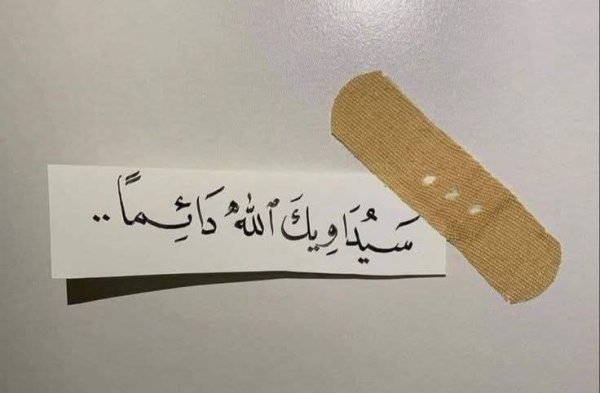 سَيُدَاوِيكَ ٱللهُ دَائِماً..